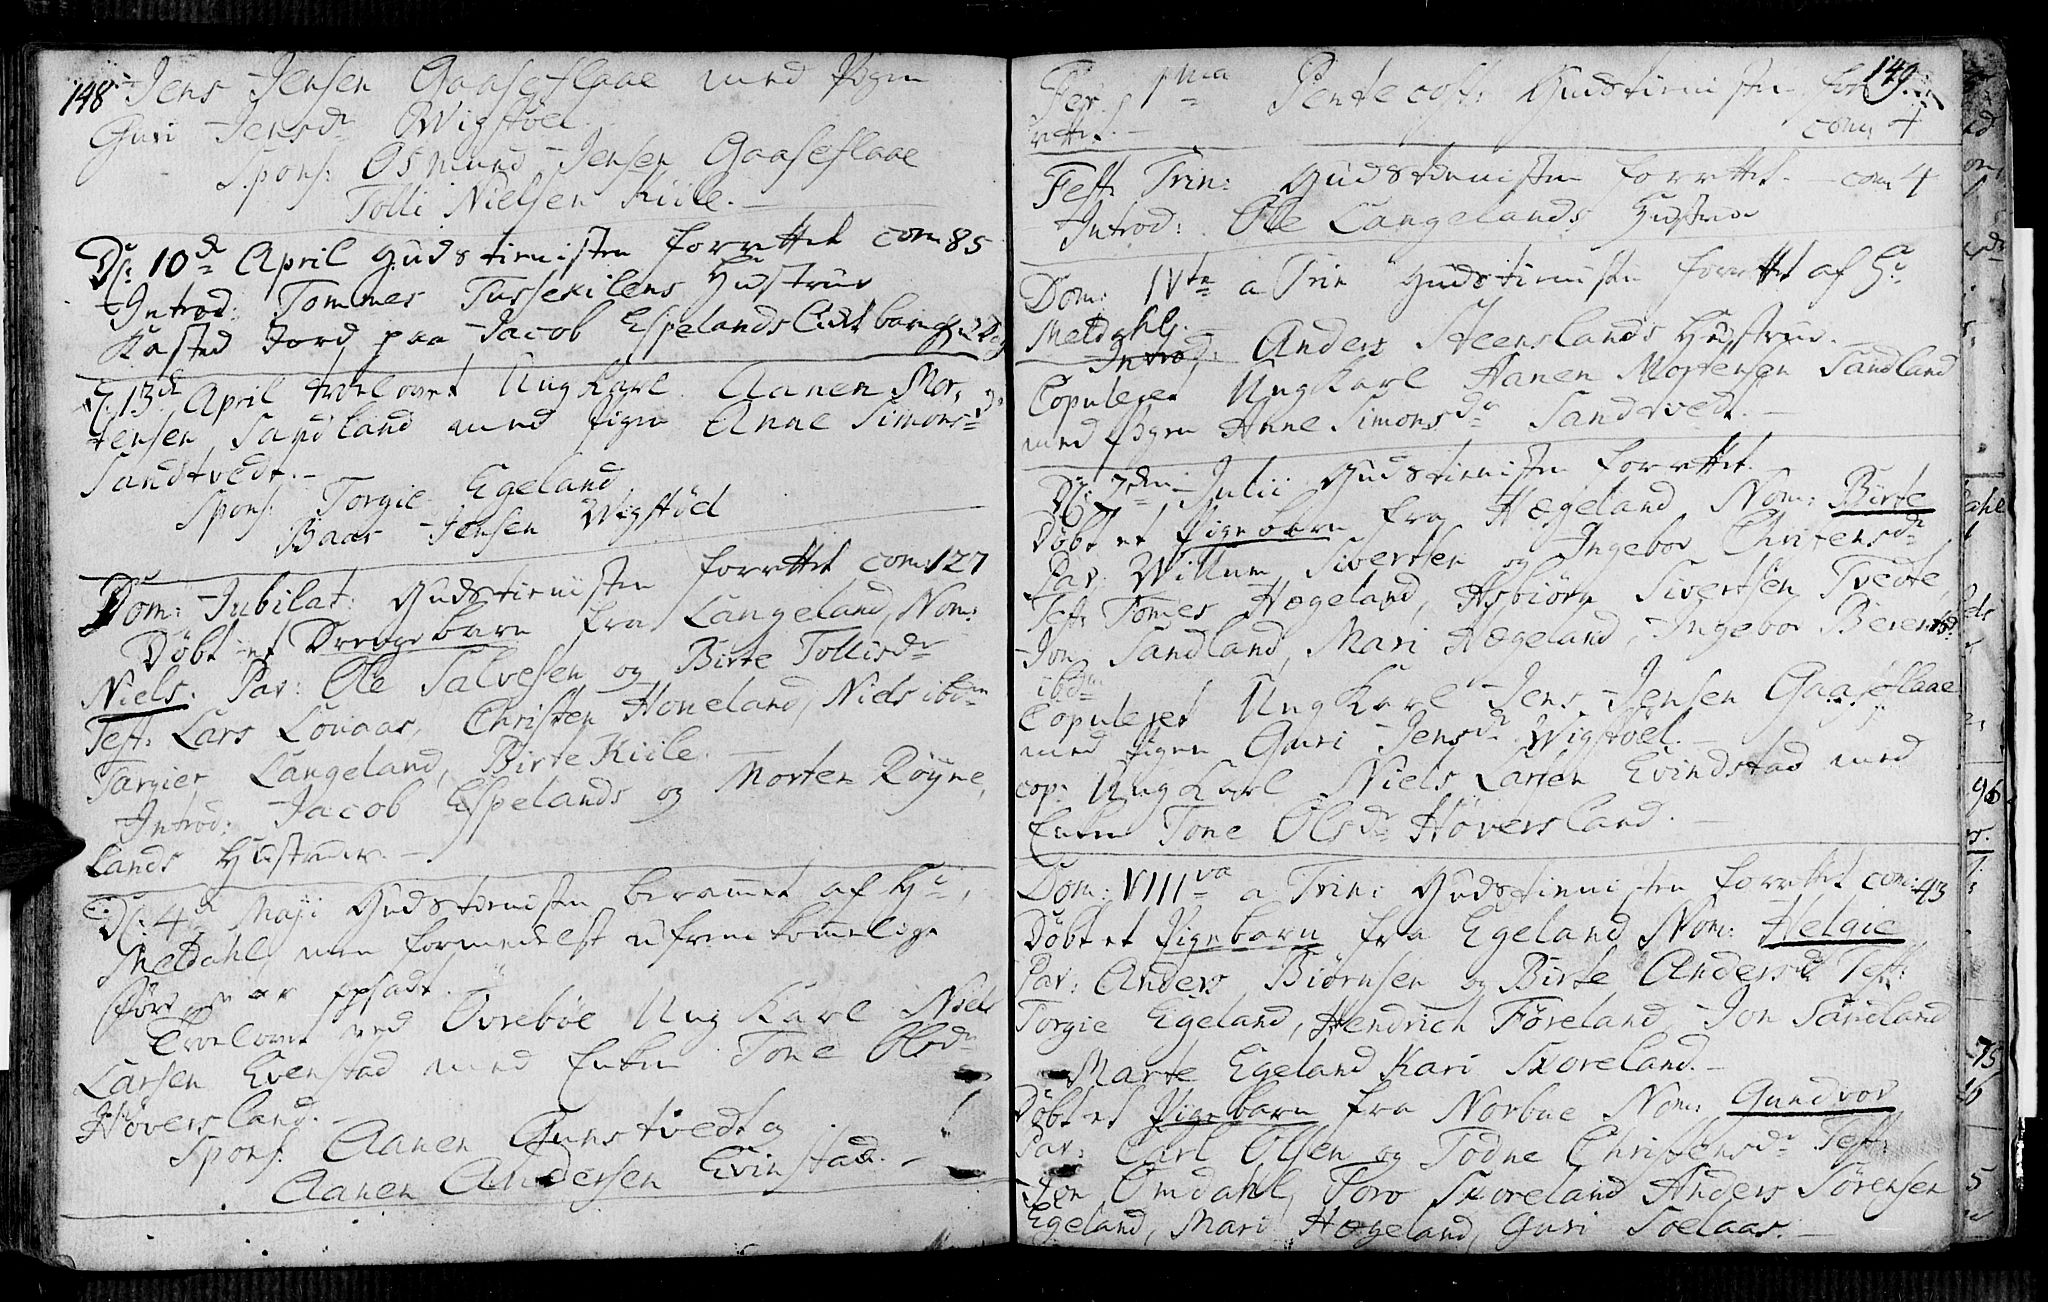 148
Jens Jensen Gaaseflaae med Pigen
Guri Jensdr Wigstøel.
Spons: Osmund Jensen Gaaseflaae
Tolli Nielsen Kiile.
D: 10de April Gudstienisten forrettet com 85
Introd: Tommes Tussekilens Hustrue
Kasted Jord paa Jacob Espelands lidet barn
D: 13de April trolovet Ung Karl Aanen Mor-
tensen Sandland med Pigen Anne Simonsdr
Sandtvedt.
Spons: Torgie Egeland
Baar Jensen Wigstøel
Dom: Jubilat: Gudstienisten forrettet com: 127
Døbt et Drengebarn fra Langeland, Nom:
Niels. Par: Ole Salvesen og Birte Tollisdr
Test: Lars Louaas, Christen Honeland, Niels ibdm
Targier Langeland, Birte Kiile.
Introd: Jacob Espelands og Morten Røyne,
lands Hustruer.
D: 4de Maji Gudstienisten berammet af Hr
Meldahl, men formedelst ufremkommelige
Føre opsadt.
Trolovet ved Øvrebøe Ung Karl Niels
Larsen Evenstad med Enken Tone Olsdr
Høversland.
Spons: Aanen Gunstvedt og
Aanen Andersen Evinstad.
149
Fer: 1ma Pentecost: Gudstienisten for-
rettet. com 4
Fest: Trin: Gudstienisten forrettet. com 4
Introd: Ole Langelands Hustrue
Dom: IVte a Trin Gudstienisten forrettet af Hr
Meldahl.
Introd: Anders Steenslands Hustrue.
Copuleret Ung Karl Aanen Mortensen Sandland
med Pigen Anne Simonsdr Sandtvedt.
D: 7de Julii Gudstienisten forrettet.
Døbt et Pigebarn fra Hægeland Nom: Birte
Par: Willum Sivertsen og Ingebor Christensdr
Test: Tomes Hægeland, Asbiørn Sivertsen Tvedte
Jon Sandland, Mari Hægeland, Ingebor Berentsdr
ibdm
Copuleret Ung Karl Jens Jensen Gaaseflaae
med Pigen Guri Jensdr Wigstøel.
cop: Ung Karl Niels Larsen Evindstad med
Enken Tone Olsdr Høversland.
Dom: VIIIva a Trin: Gudstienisten forrettet com: 43
Døbt et Pigebarn fra Egeland Nom: Helgie
Par: Anders Biørnsen og Birte Andersdr Test:
Torgie Egeland, Hendrich Føreland, Jon Sandland
Marte Egeland Kari Skoreland.
Døbt et Pigebarn fra Norbue Nom: Gundvor
Par: Carl Olsen og Todne Christensdr Test:
Jon Omdahl, Toro Skoreland Anders Sørensen
Egeland, Mari Hægeland, Guri Soelaas.